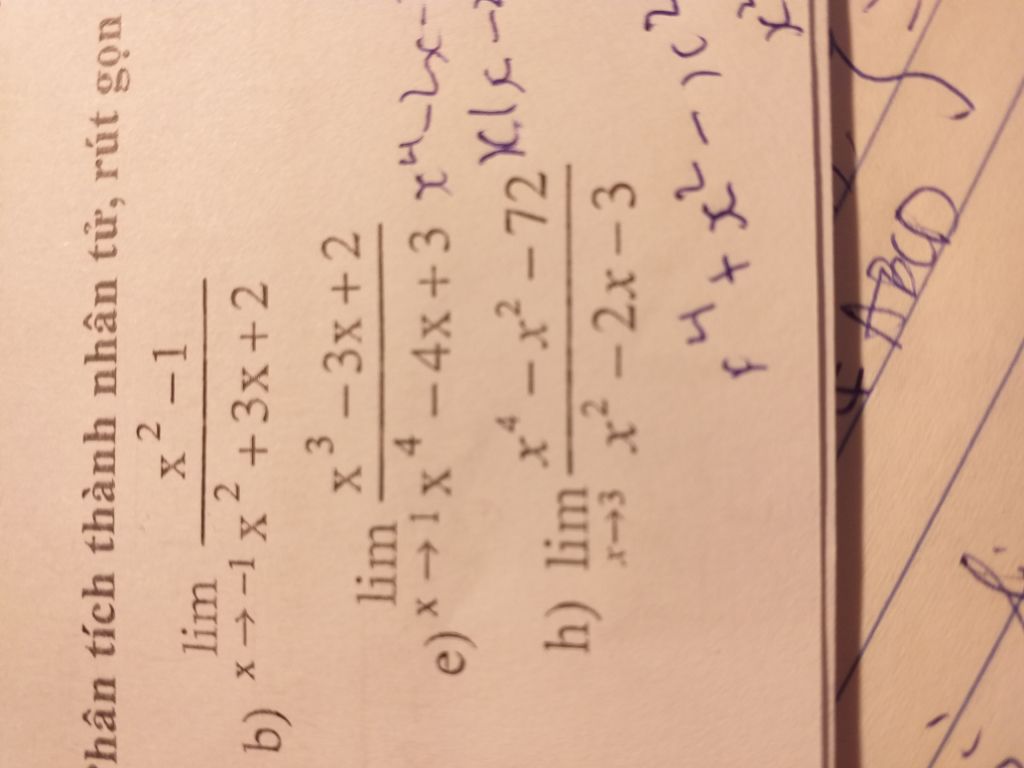 Phân tích thành nhân tử, rút gọn
b) lim x→−1 (x² − 1)/(x² + 3x + 2)
e) lim x→1 (x³ − 3x + 2)/(x⁴ − 4x + 3)
x⁴ − 2x −
x(x −
h) lim x→3 (x⁴ − x² − 72)/(x² − 2x − 3)
⁴ + x² − x²
x²
ABCD